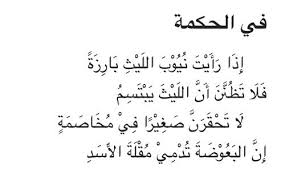 في الحكمة
إِذَا رَأَيْتَ نُيُوْبَ اللَيْثِ بَارِزَةً
فَلَا تَظُنَّنَ أَنَّ اللَيْثَ يَبْتَسِمُ
لَا تَحْقَرَنَّ صَغِيْرًا فِيْ مُخَاصَمَةٍ
إِنَّ البَعُوْضَةَ تُدْمِيْ مُقْلَةَ الأَسَدِ